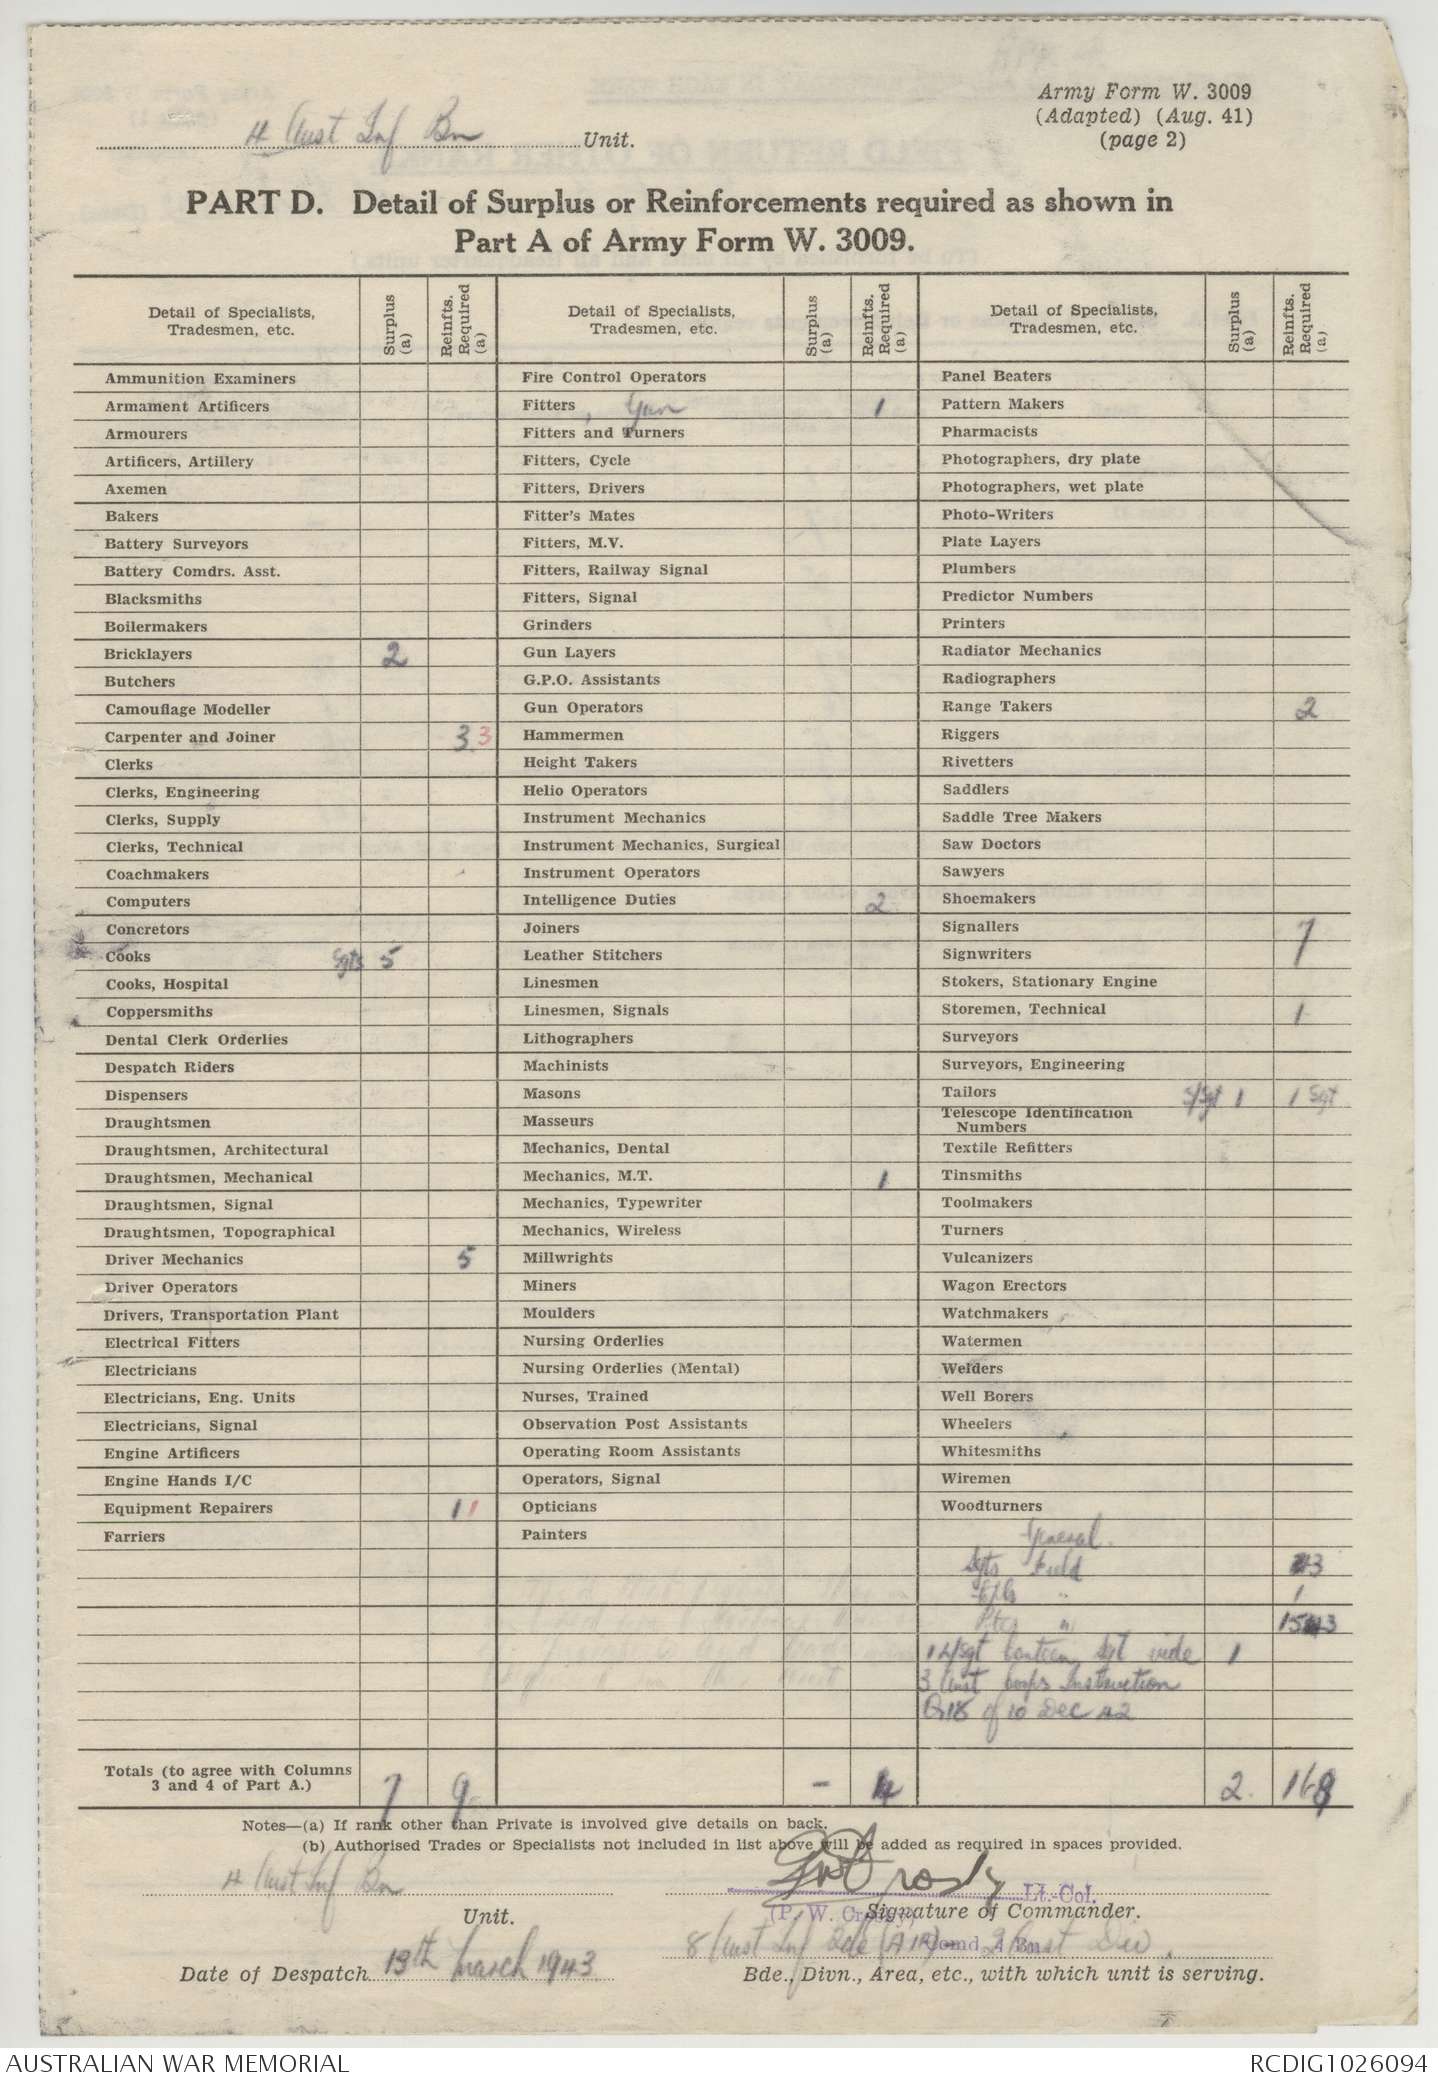 Army Form W. 3009
(Adapted) (Aug. 41)
(page 2)
4 Aust Inf Bn Unit.
PART D. Detail of Surplus or Reinforcements required as shown in
Part A of Army Form W. 3009.
Detail of Specialists, Tradesmen, etc. | Surplus (a) | Reinfts. Required (a) | Detail of Specialists, Tradesmen, etc. | Surplus (a) | Reinfts. Required (a) | Detail of Specialists, Tradesmen, etc. | Surplus (a) | Reinfts. Required (a)
Ammunition Examiners | Fire Control Operators | Panel Beaters
Armament Artificers | Fitters, Gun 1 | Pattern Makers
Armourers | Fitters and Turners | Pharmacists
Artificers, Artillery | Fitters, Cycle | Photographers, dry plate
Axemen | Fitters, Drivers | Photographers, wet plate
Bakers | Fitter's Mates | Photo-Writers
Battery Surveyors | Fitters, M.V. | Plate Layers
Battery Comdrs. Asst. | Fitters, Railway Signal | Plumbers
Blacksmiths | Fitters, Signal | Predictor Numbers
Boilermakers | Grinders | Printers
Bricklayers 2 | Gun Layers | Radiator Mechanics
Butchers | G.P.O. Assistants | Radiographers
Camouflage Modeller | Gun Operators | Range Takers 2
Carpenter and Joiner 3 3 | Hammermen | Riggers
Clerks | Height Takers | Rivetters
Clerks, Engineering | Helio Operators | Saddlers
Clerks, Supply | Instrument Mechanics | Saddle Tree Makers
Clerks, Technical | Instrument Mechanics, Surgical | Saw Doctors
Coachmakers | Instrument Operators | Sawyers
Computers | Intelligence Duties 2 | Shoemakers
Concretors | Joiners | Signallers 7
Cooks Sgts 5 | Leather Stitchers | Signwriters
Cooks, Hospital | Linesmen | Stokers, Stationary Engine
Coppersmiths | Linesmen, Signals | Storemen, Technical 1
Dental Clerk Orderlies | Lithographers | Surveyors
Despatch Riders | Machinists | Surveyors, Engineering
Dispensers | Masons | Tailors S/Sgt 1 1 Sgt
Draughtsmen | Masseurs | Telescope Identification Numbers
Draughtsmen, Architectural | Mechanics, Dental | Textile Refitters
Draughtsmen, Mechanical | Mechanics, M.T. 1 | Tinsmiths
Draughtsmen, Signal | Mechanics, Typewriter | Toolmakers
Draughtsmen, Topographical | Mechanics, Wireless | Turners
Driver Mechanics 5 | Millwrights | Vulcanizers
Driver Operators | Miners | Wagon Erectors
Drivers, Transportation Plant | Moulders | Watchmakers
Electrical Fitters | Nursing Orderlies | Watermen
Electricians | Nursing Orderlies (Mental) | Welders
Electricians, Eng. Units | Nurses, Trained | Well Borers
Electricians, Signal | Observation Post Assistants | Wheelers
Engine Artificers | Operating Room Assistants | Whitesmiths
Engine Hands I/C | Operators, Signal | Wiremen
Equipment Repairers 1 1 | Opticians | Woodturners
Farriers | Painters | General.
Sgts Field 3
Cpls " 1
Ptes "
1 L/Sgt Canteen Sgt vide 1
3 Aust Corps Instruction
G18 of 10 Dec 42
Totals (to agree with Columns 3 and 4 of Part A.) 7 9 | - 4 | 2. 168
Notes—(a) If rank other than Private is involved give details on back.
(b) Authorised Trades or Specialists not included in list above will be added as required in spaces provided.
4 Aust Inf Bn
Unit.
Lt.-Col.
(P. W. Crosby)
Signature of Commander.
Comd. 4 Bn
8 Aust Inf Bde (AIF) - 2 Aust Div.
Date of Despatch 13th March 1943
Bde., Divn., Area, etc., with which unit is serving.
AUSTRALIAN WAR MEMORIAL
RCDIG1026094